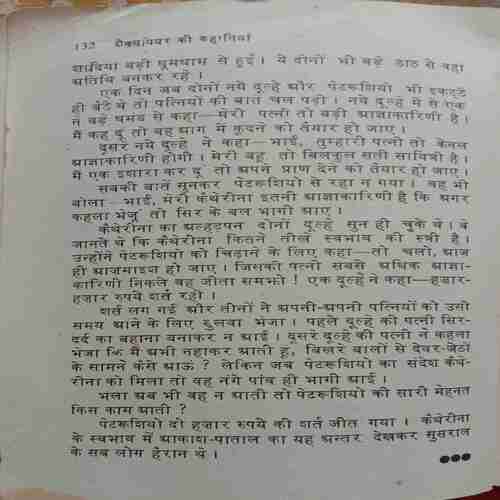 132 शैक्सपियर की कहानियाँ
शादियां बड़ी धूमधाम से हुईं। ये दोनों भी बड़े ठाठ से वहां
अतिथि बनकर रहे।
एक दिन जब दोनों नये दूल्हे और पेटरूशियो भी इकट्ठे
ही बैठे थे तो पत्नियों की बात चल पड़ी। नये दूल्हे में से एक
ने बड़े घमंड से कहा—मेरी पत्नी तो बड़ी आज्ञाकारिणी है।
मैं कह दूं तो वह आग में कूदने को तैयार हो जाए।
दूसरे नये दूल्हे ने कहा—भाई, तुम्हारी पत्नी तो केवल
आज्ञाकारिणी होगी। मेरी बहू तो बिलकुल सती सावित्री है।
मैं एक इशारा कर दूं तो अपने प्राण देने को तैयार हो जाए।
सबकी बातें सुनकर पेटरूशियो से रहा न गया। वह भी
बोला—भाई, मेरी कैथेरीना इतनी आज्ञाकारिणी है कि अगर
कहला भेजूं तो सिर के बल भागी आए।
कैथेरीना का अल्हड़पन दोनों दूल्हे सुन ही चुके थे। वे
जानते थे कि कैथेरीना कितने तीखे स्वभाव की स्त्री है।
उन्होंने पेटरूशियो को चिढ़ाने के लिए कहा—तो चलो, आज
ही आजमाइश हो जाए। जिसकी पत्नी सबसे अधिक आज्ञा-
कारिणी निकले वह जीता समझो! एक दूल्हे ने कहा—हज़ार-
हज़ार रुपये शर्त रही।
शर्त लग गई और तीनों ने अपनी-अपनी पत्नियों को उसी
समय आने के लिए बुलवा भेजा। पहले दूल्हे की पत्नी सिर-
दर्द का बहाना बनाकर न आई। दूसरे दूल्हे की पत्नी ने कहला
भेजा कि मैं अभी नहाकर आती हूं, बिखरे बालों से देवर-जेठों
के सामने कैसे आऊं? लेकिन जब पेटरूशियो का संदेश कैथे-
रीना को मिला तो वह नंगे पांव ही भागी आई।
भला अब भी वह न आती तो पेटरूशियो की सारी मेहनत
किस काम आती?
पेटरूशियो दो हज़ार रुपये की शर्त जीत गया। कैथेरीना
के स्वभाव में आकाश-पाताल का यह अन्तर देखकर सुसराल
के सब लोग हैरान थे।